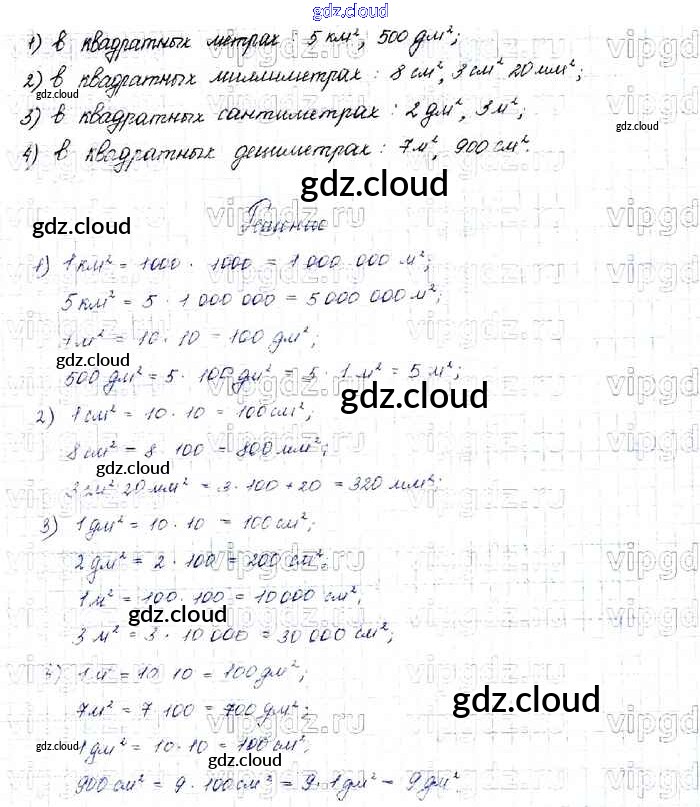 gdz.cloud
1) в квадратных метрах : 5 км², 500 дм²;
2) в квадратных миллиметрах : 8 см², 3 см² 20 мм²;
3) в квадратных сантиметрах : 2 дм², 3 м²;
4) в квадратных дециметрах : 7 м², 900 см².
Решение
1) 1 км² = 1000 · 1000 = 1 000 000 м²;
5 км² = 5 · 1 000 000 = 5 000 000 м²;
1 м² = 10 · 10 = 100 дм²;
500 дм² = 5 · 100 дм² = 5 · 1 м² = 5 м²;
2) 1 см² = 10 · 10 = 100 см²;
8 см² = 8 · 100 = 800 мм²;
3 см² 20 мм² = 3 · 100 + 20 = 320 мм²;
3) 1 дм² = 10 · 10 = 100 см²;
2 дм² = 2 · 100 = 200 см²;
1 м² = 100 · 100 = 10 000 см²;
3 м² = 3 · 10 000 = 30 000 см²;
1 м² = 10 · 10 = 100 дм²;
7 м² = 7 · 100 = 700 дм²;
1 дм² = 10 · 10 = 100 см²;
900 см² = 9 · 100 см² = 9 · 1 дм² = 9 дм².